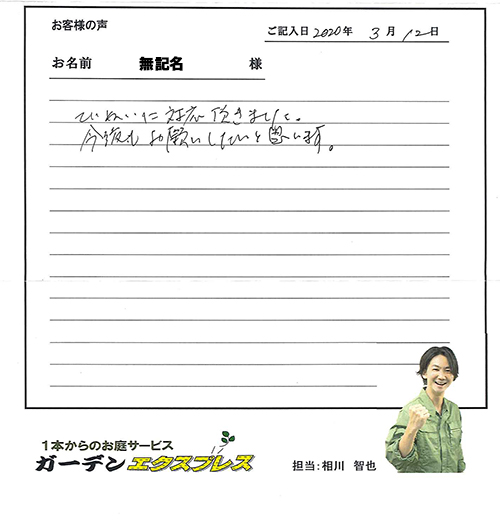 お客様の声
ご記入日 2020年 3月 12日
お名前 無記名 様
ていねいに対応頂きました。
今後もお願いしたいと思います。
1本からのお庭サービス
ガーデンエクスプレス
担当:相川 智也